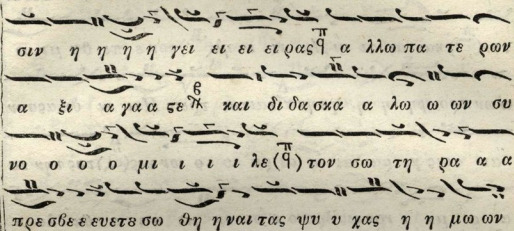 σιν η η η η γει ει ει ει ρας α λλω πα τε ρων
α ξι α γα α ϛε και δι δα σκά α λω ω ων συ
νο ο ο ο μι ι ι ι λε ( ) τον σω τη ρα α α
πρε σβε ε ευετε σω θη η ναι τας ψυ υ χας η η μω ων